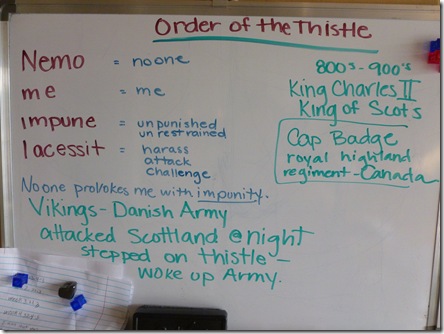 Order of the Thistle
Nemo = no one
me = me
impune = unpunished
unrestrained
lacessit = harass
attack
challenge
No one provokes me with impunity.
800's - 900's
King Charles II
King of Scots
Cap Badge
royal highland
regiment - Canada
Vikings - Danish Army
attacked Scotland @ night
stepped on thistle -
woke up Army.